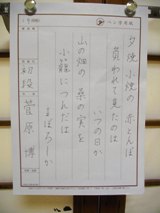 ペン字考級
夕焼 小焼の 赤とんぼ
負われて 見たのは
いつの日か
山の畑の 桑の実を
小籠に つんだは
まぼろしか
初段 菅原 博